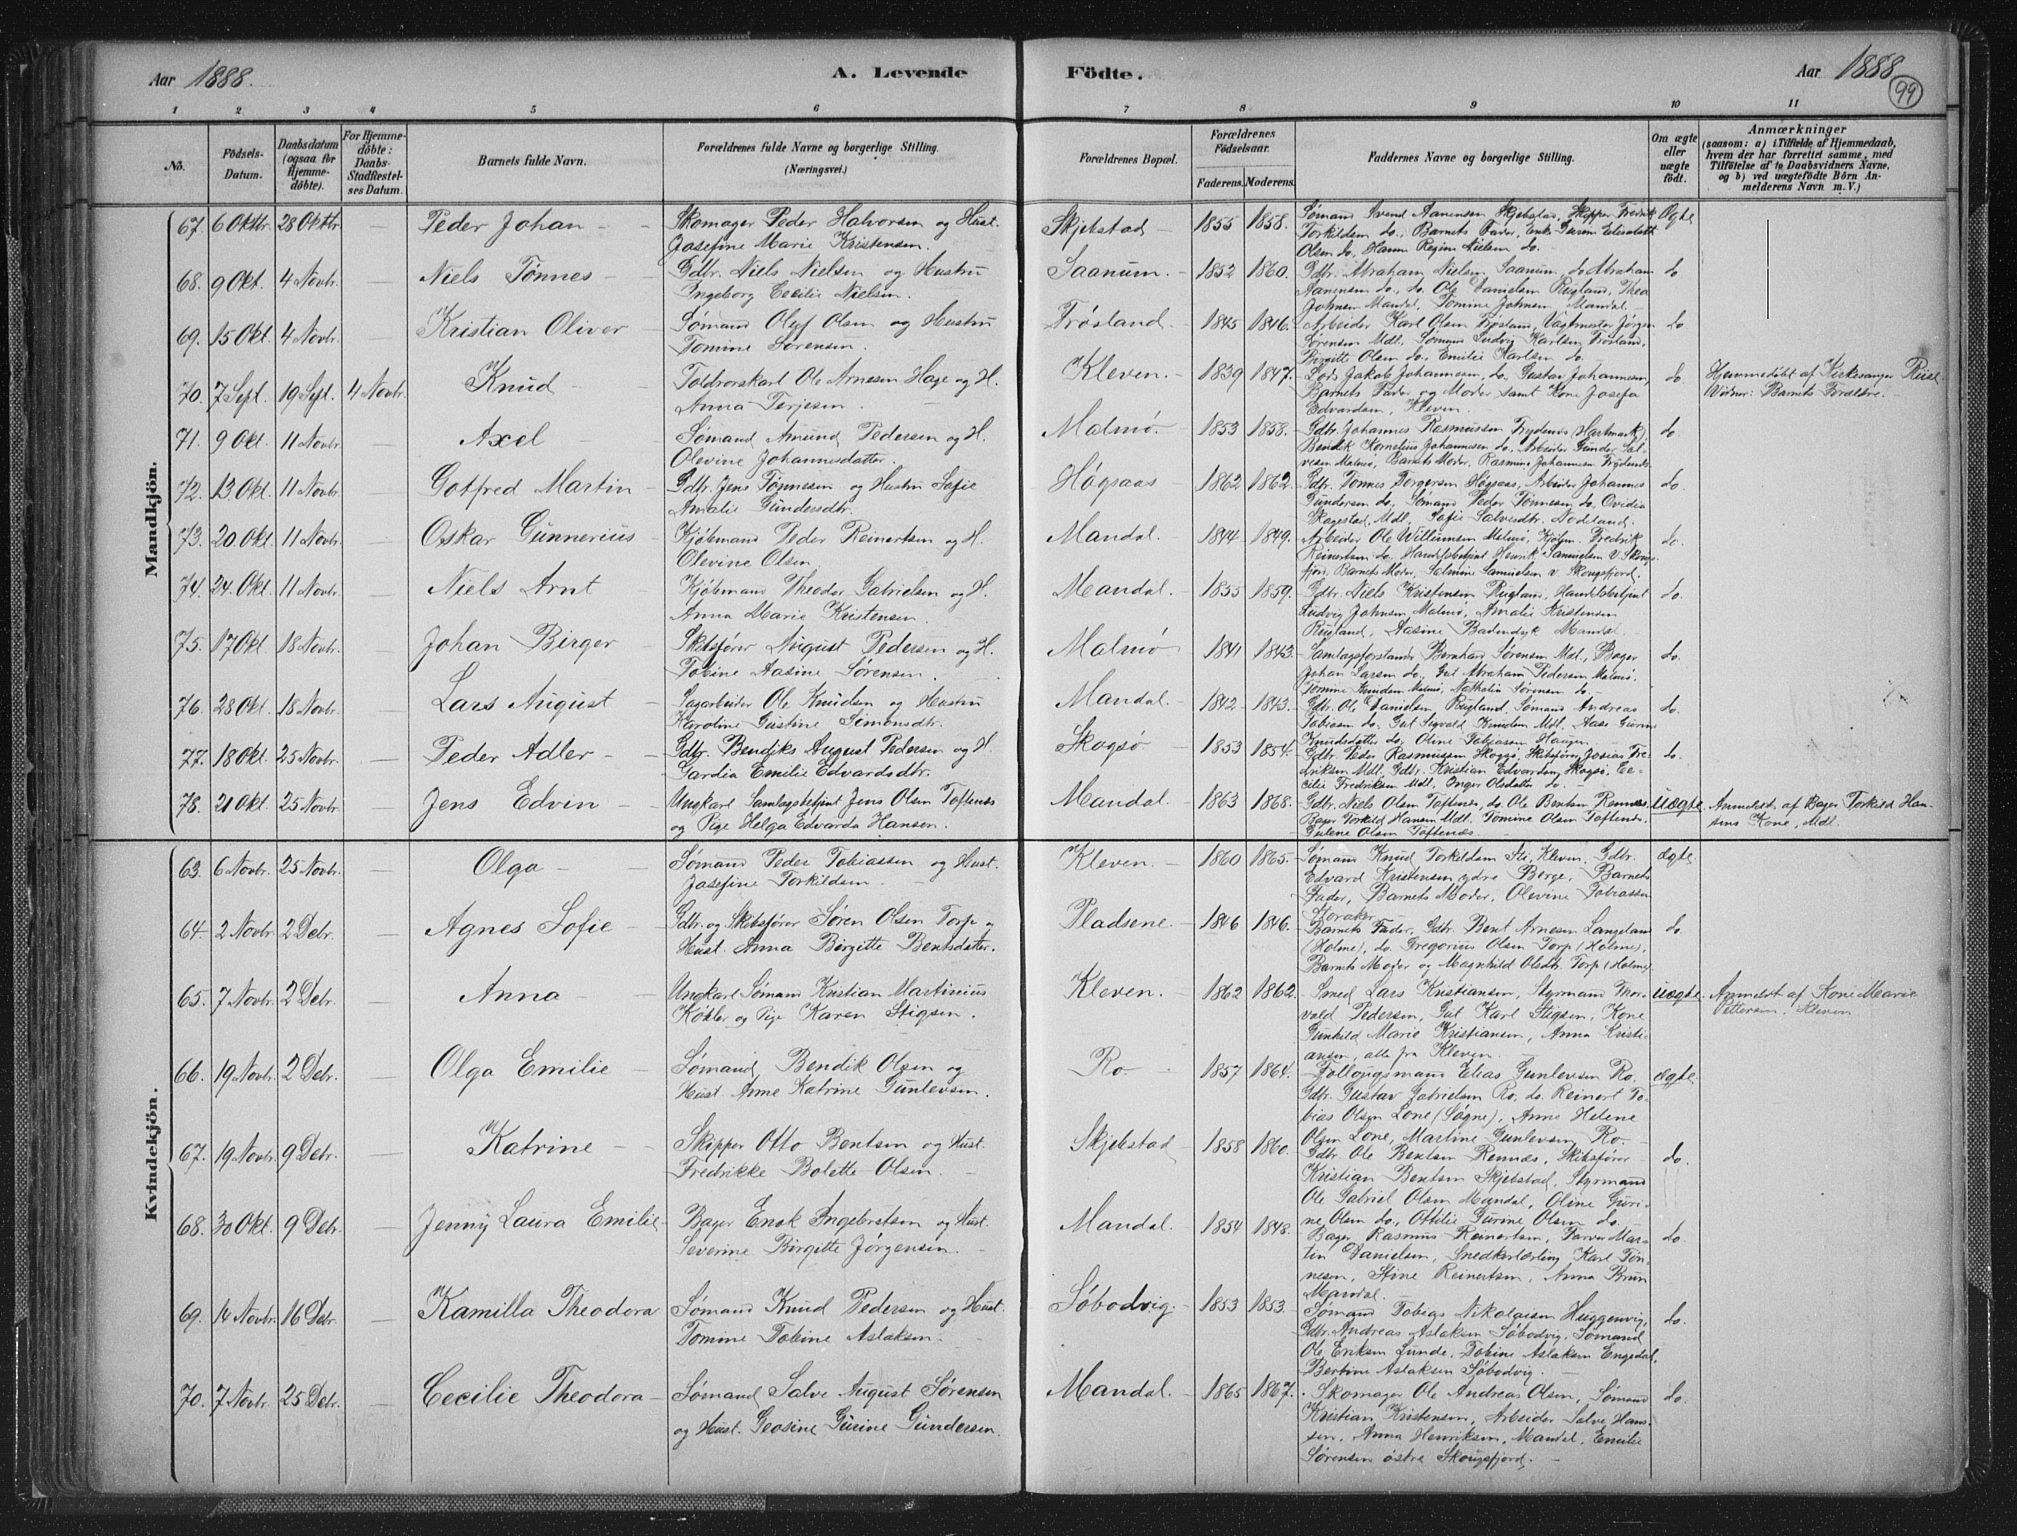 Aar 1888.
A. Levende
Födte.
Aar 1888
99
1 2 3 4 5 6 7 8 9 10 11
No.
Födsels-Datum.
Daabsdatum (ogsaa för Hjemme-döbte).
For Hjemme-döbte: Daabs-Stadfæstel-ses Datum.
Barnets fulde Navn.
Forældrenes fulde Navne og borgerlige Stilling.
(Næringsvei.)
Forældrenes Bopæl.
Forældrenes Födselsaar.
Faderens. Moderens.
Faddernes Navne og borgerlige Stilling.
Om ægte eller uægte födt.
Anmærkninger
(saasom: a) i Tilfælde af Hjemmedaab, hvem der har forrettet samme, med Tilföielse af to Daabsvidners Navne, og b) ved uægtefödte Börn An-melderens Navn m. V.)
Mandkjön.
67. 6 Oktbr. 28 Oktbr. — Peder Johan — Skomager Peder Halvorsen og Hust. Skjebstad — 1855 1858. Sømand Svend Aanensen Skjebstad, Skipper Fredrik Ægte
Josefine Marie Kristensen. Torkildsen do, Barnets Fader, Enke Guren Elisabeth
Olsen do, Hanne Regine Nielsen do.
68. 9 Okt. 4 Novbr. — Niels Tønnes — Gdbr. Niels Nielsen og Hustru Saanum. — 1852 1860. Gdbr. Abraham Nielsen Saanum, do Abraham do
Ingeborg Cecilie Nielsen. Aanensen do, do. Ole Danielsen Rugland, Thea
Johnsen Mandal, Tomine Johnsen Mandal.
69. 15 Okt. 4 Novbr. — Kristian Oliver — Sømand Oluf Olsen og Hustru Frøsland. — 1845 1846. Arbeider Karl Olsen Frøsland, Vagtmester Jørgen do
Tomine Sørensen. Sørensen Mdl. Sømand Ludvig Karlsen Frøsland.
Birgitte Olsen do, Emilie Karlsen do.
70. 7 Sept. 19 Sept. 4 Novbr. Knud — Toldrorskarl Ole Arnesen Hage og H. Kleven — 1839 1847. Lods Jakob Johannesen, do. Gustav Johannesen, do. Hjemmedøbt af Kirkesanger Reist.
Anna Terjesen. Barnets Fader og Moder samt Kone Josefa Vidner: Barnets Forældre.
Edvardsen, Kleven.
71. 9 Okt. 11 Novbr. — Axel — Sømand Amund Pedersen og H. Malmø. — 1853 1858. Gdbr. Johannes Rasmussen Frydenås (Hartmark), do.
Olevine Johannesdatter. Bendik Kornelius Johannesen do, Arbeider Gunder Sal-
vesen Malmø, Barnets Moder, Rasmine Johannesen
72. 13 Okt. 11 Novbr. — Gotfred Martin — Gdbr. Jens Tønnesen og Hustru Sofie Høgsaas — 1862 1862. Gdbr. Tønnes Torgersen Høgsaas, Arbeider Johannes do.
Amalie Gundersdtr. Gundersen do, Sømand Peder Tønnesen do, Ovidia
Skagestad, Mdl, Sofie Salvesdtr. Nodeland.
73. 20 Okt. 11 Novbr. — Oskar Gunnerius — Kjøbmand Peder Reinertsen og H. Mandal. — 1844 1849. Arbeider Ole Williamsen Malmø, Kjøbm. Fredrik do.
Olevine Olsen Reinertsen do, Handelsbetjent Henrik Samuelsen v. Skougs-
fjord, Barnets Moder, Salmine Samuelsen v. Skougsfjord.
74. 24 Okt. 11 Novbr. — Niels Arnt — Kjøbmand Theodor Gabrielsen og H. Mandal. — 1855 1859. Gdbr. Niels Kristensen Rugland, Handelsbetjent do.
Anna Marie Kristensen. Ludvig Johnsen Malmø, Amalie Kristensen
Rugland, Aasine Badendyk Mandal.
75. 17 Okt. 18 Novbr. — Johan Birger — Skibsfører August Pedersen og H. Malmø — 1841 1843. Samlagsforstander Bernhard Sørensen Mdl, Bager do.
Tobine Aasine Sørensen. Johan Larsen do, Gut Abraham Pedersen Malmø,
Tomine Knudsen Malmø, Nathalia Sørensen do.
76. 28 Okt. 18 Novbr. — Lars August Sagarbeider Ole Knudsen og Hustru Mandal — 1842 1843. Gdbr. Ole Danielsen Rugland, Sømand Andreas do.
Karoline Gustine Simonsdtr. Tobiasen do, Gut Sigvald Knudsen Mdl. Aase Gurine
Knudsdatter do, Oline Tobiassen
77. 18 Okt. 25 Novbr. — Peder Adler — Gdbr. Bendiks August Pedersen og H. Skogsø — 1853 1854. Gdbr. Peder Rasmussen Skogsø, Skibsfører Josias Fre- do.
Gardia Emilie Edvardsdtr. driksen Mdl. Gdbr. Kristian Edvardsen Skogsø, Ce-
cilie Fredriksen Mdl. Inger Olsdatter do.
78. 21 Okt. 25 Novbr. — Jens Edvin — Ungkarl Samlagsbetjent Jens Olsen Toftenes Mandal — 1863 1868. Gdbr. Niels Olsen Toftenes, do. Ole Bentsen Rennes, uægte Anmeldt af Bager Torkild Han-
og Pige Helga Edvarda Hansen. Bager Torkild Hansen Mdl. Tomine Olsen Toftenes. sens Kone, Mdl.
Gulene Olsen Toftenæs.
Kvindekjön.
63. 6 Novbr. 25 Novbr. — Olga — Sømand Peder Tobiassen og Hust. Kleven. — 1860 1865. Sømand Knud Torkildsen Kleven, Gdbr. ægte
Josefine Torkildsen. Edvard Kristensen ydre Berge, Barnets
Fader, Barnets Moder, Olevine Tobiassen
Storaker.
64. 2 Novbr. 2 Debr. — Agnes Sofie — Gdbr. og Skibsfører Søren Olsen Torp og Pladsene — 1846 1846. Barnets Fader, Gdbr. Bent Arnesen Langeland do.
Hust. Anna Birgitte Bentsdatter. (Holme), do. Gregorius Olsen Torp (Holme),
Barnets Moder og Magnhild Olsdtr. Torp (Holme)
65. 7 Novbr. 2 Debr. — Anna — Ungkarl Sømand Kristian Martinius Kleven. — 1862 1862. Smed Lars Kristiansen, Styrmand Thor- uægte. Anmeldt af Kone Marie
Køhler og Pige Karen Stigsen. vald Pedersen, Gut Karl Stigsen, Kone Pettersen, Kleven
Gunhild Marie Kristiansen, Anna Kristi-
ansen, alle fra Kleven.
66. 19 Novbr. 2 Debr. — Olga Emilie — Sømand Bendik Olsen og Ro — 1857 1864. Follougsmand Elias Gunlevsen Ro. ægte.
Hust Anne Katrine Gunlevsen. Gdbr. Gustav Gabrielsen Ro, do. Reinert To-
bias Olsen Lone (Søgne), Anne Helene
Olsen Lone, Martine Gunlevsen Ro.
67. 19 Novbr. 9 Debr. — Katrine — Skipper Otto Bentsen og Hust. Skjebstad — 1858 1860. Gdbr. Ole Bentsen Rennæs, Skibsfører do.
Fredrikke Bolette Olsen. Kristian Bentsen Skjebstad, Styrmand
Ole Gabriel Olsen Mandal, Oline Guri-
ne Olsen do, Ottilie Gurine Olsen do.
68. 30 Okt. 9 Debr. — Jenny Laura Emilie — Bager Enok Ingebretsen og Hust. Mandal. — 1854 1848. Bager Rasmus Reinertsen, Farver Mar- do.
Severine Birgitte Jørgensen. tin Danielsen, Snedkerlærling Karl Tøn-
nesen, Stine Reinertsen, Anna Brun
Mandal.
69. 14 Novbr. 16 Debr. — Kamilla Theodora Sømand Knud Pedersen og Hust. Søbodvig. — 1853 1853. Sømand Tobias Nikolaisen Huggenvig, do.
Tomine Tobine Aslaksen. Gdbr. Andreas Aslaksen Søbodvig, Sømand
Ole Eriksen Lunde, Tobine Aslaksen Engedal,
Bertine Aslaksen Søbodvig.
70. 7 Novbr. 25 Debr. — Cecilie Theodora — Sømand Salve August Sørensen Mandal. — 1865 1867. Skomager Ole Andreas Olsen, Sømand do.
og Hust. Geosine Gurine Gundersen. Kristian Kristensen, Arbeider Salve Hans-
sen, Anna Henriksen, Mandal, Emilie
Sørensen østre Skougsfjord.